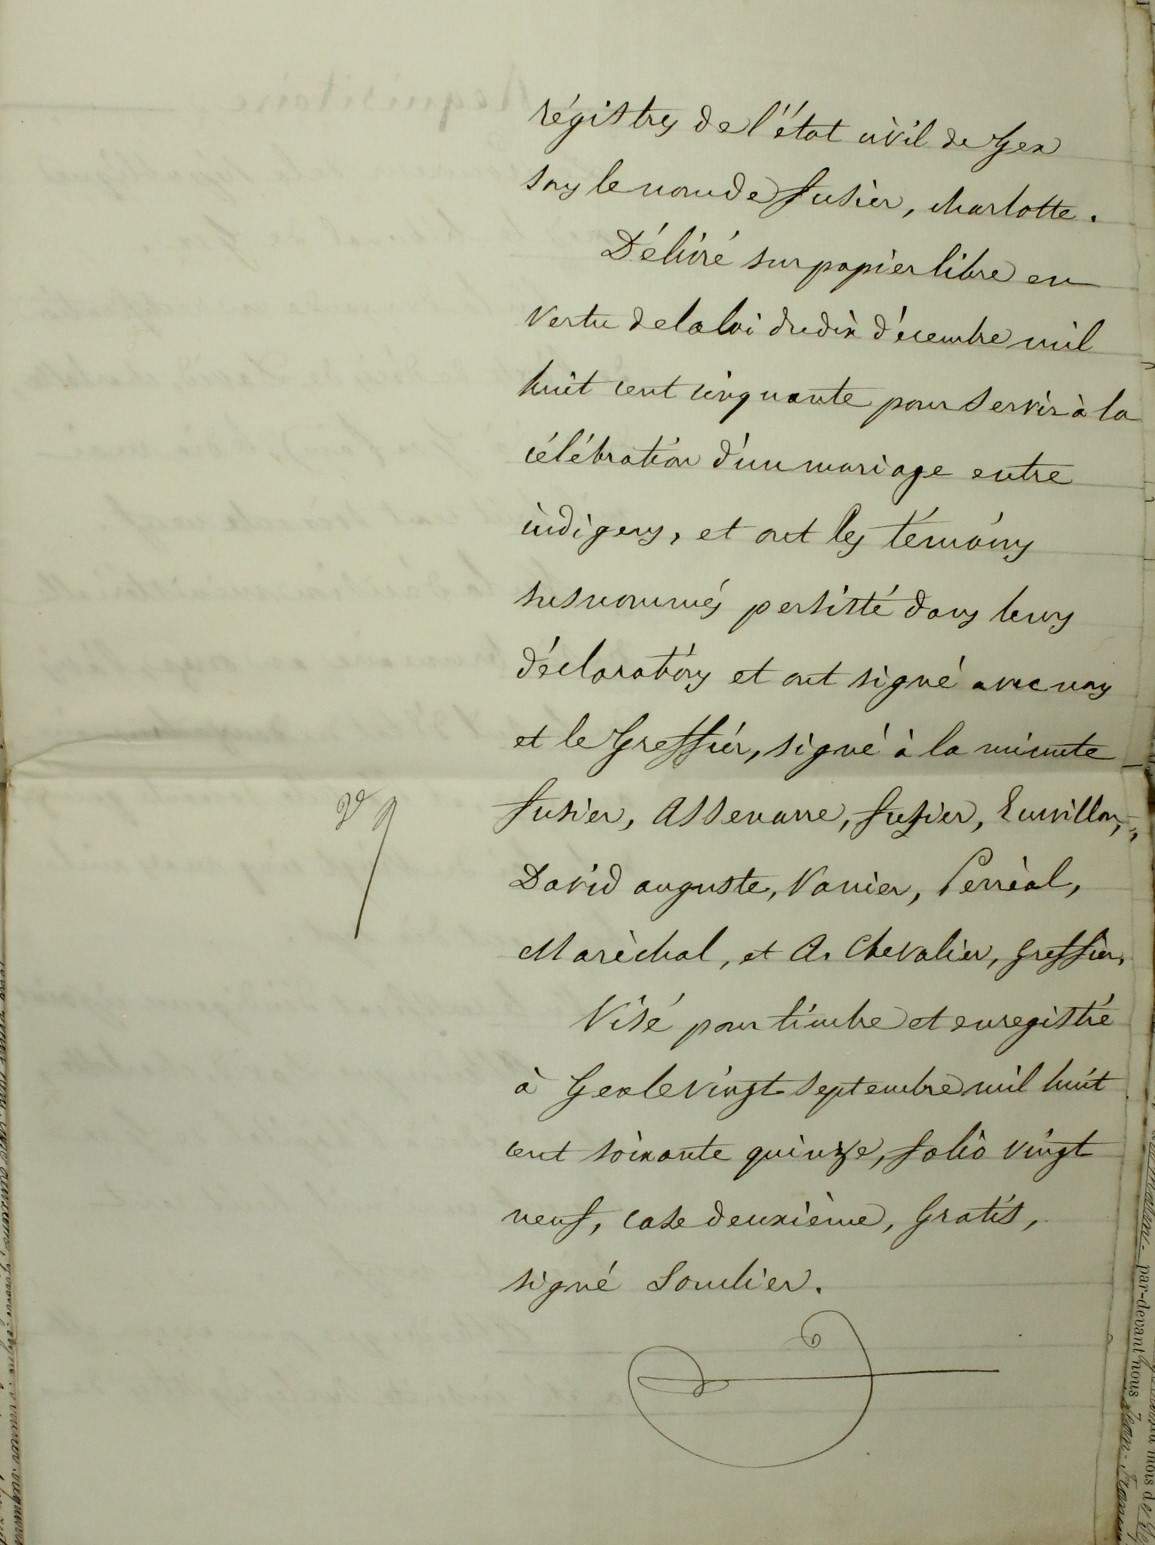 régistres de l'état civil de Gex
sous le nom de Fusier, Charlotte.
Délivré sur papier libre en
vertu de la loi du dix décembre mil
huit cent cinquante pour servir à la
célébration d'un mariage entre
indigens, et ont les témoins
susnommés persisté dans leurs
déclarations et ont signé avec nous
et le Greffier, signé à la minute
Fusier, Assenarre, Fusier, Emvillon,
David auguste, Vanier, Perréal,
Maréchal, et A. Chevalier, greffier,
Visé pour timbre et enregistré
à Gex le vingt septembre mil huit
cent soixante quinze, folio vingt
neuf, case deuxième, Gratis,
signé Soulier.
par-devant nous